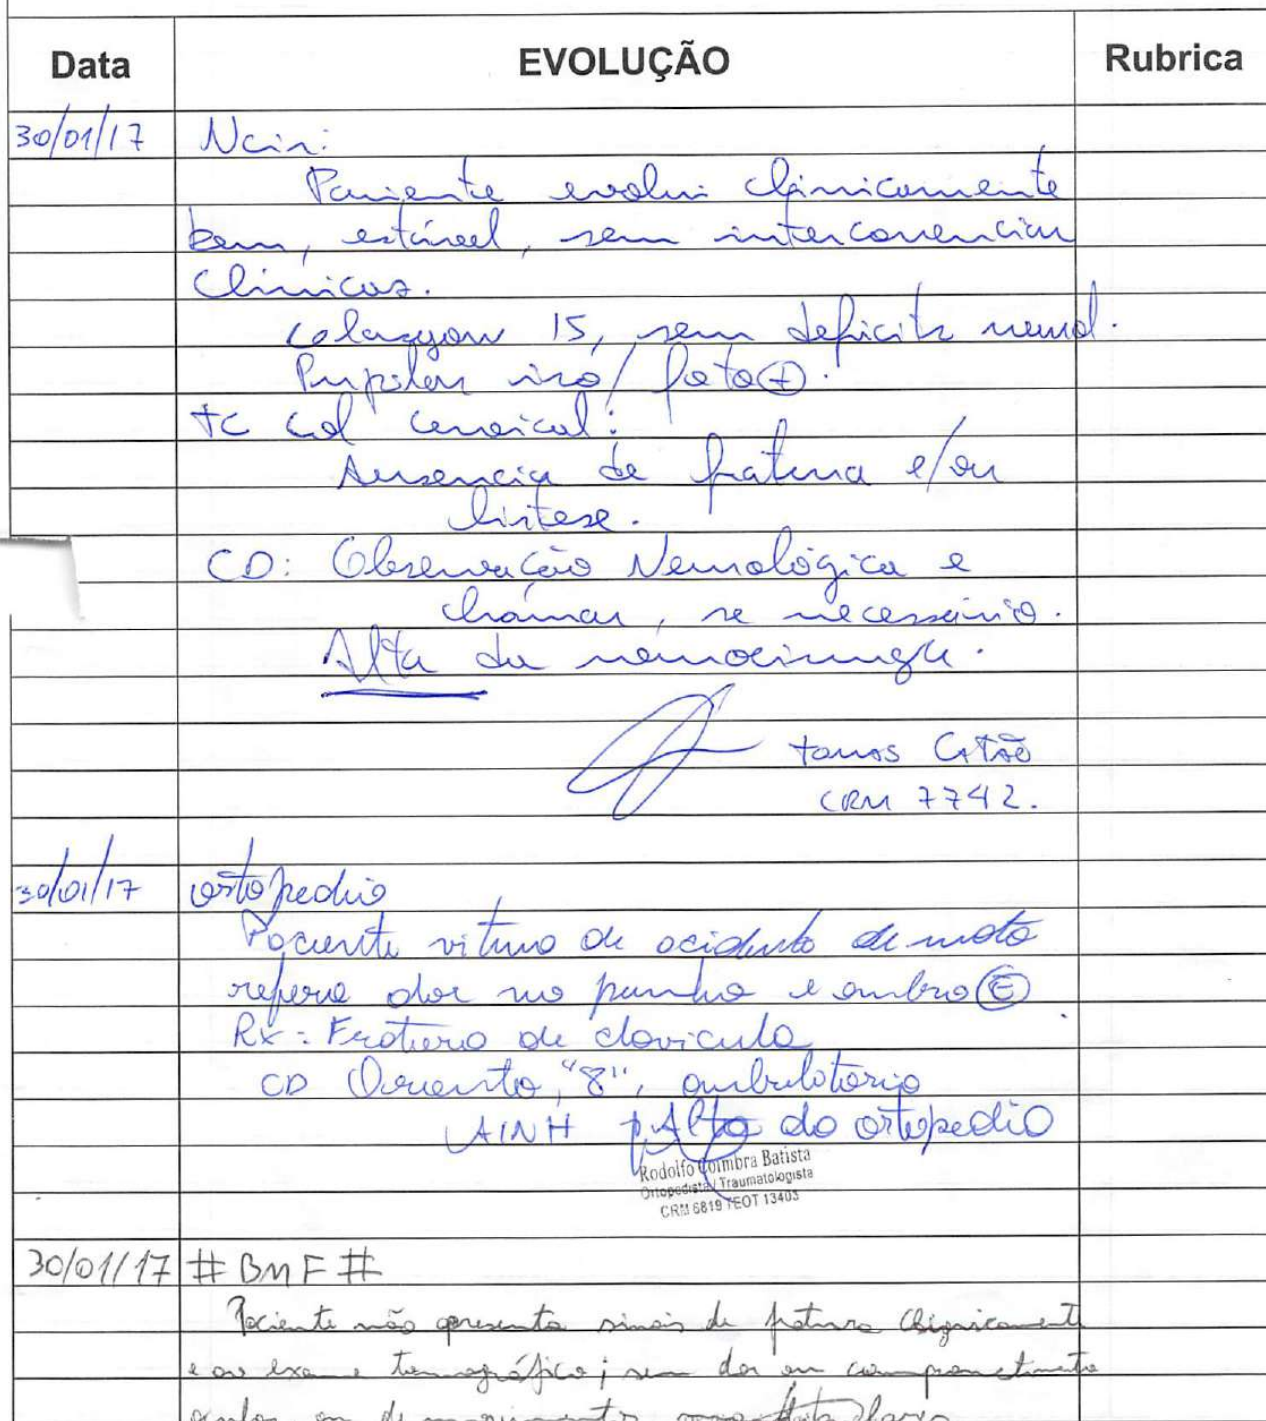 Data EVOLUÇÃO Rubrica
30/01/17 Ncir:
Paciente evolui clinicamente
bem, estável, sem intercorrencias
clínicas.
Glasgow 15, sem deficits neurol.
Pupilas iso/foto(+).
TC Col cervical:
Ausencia de fratura e/ou
listese.
CD: Observação Neurológica e
chamar, se necessário.
Alta da neurocirurgia.
CRM 7742.
30/01/17 ortopedia
Paciente vitima de acidente de moto
refere dor no punho e ombro (E)
RX: Fratura de clavicula
CD "8", ambulatorio
AINH Alta da ortopedia
Rodolfo Coimbra Batista
Ortopedista / Traumatologista
CRM 6819 TEOT 13403
30/01/17 # BMF #
Paciente não apresenta sinais de fratura clinicamente
e ao exame tomográfico; sem dor ou comprometimento
ou de